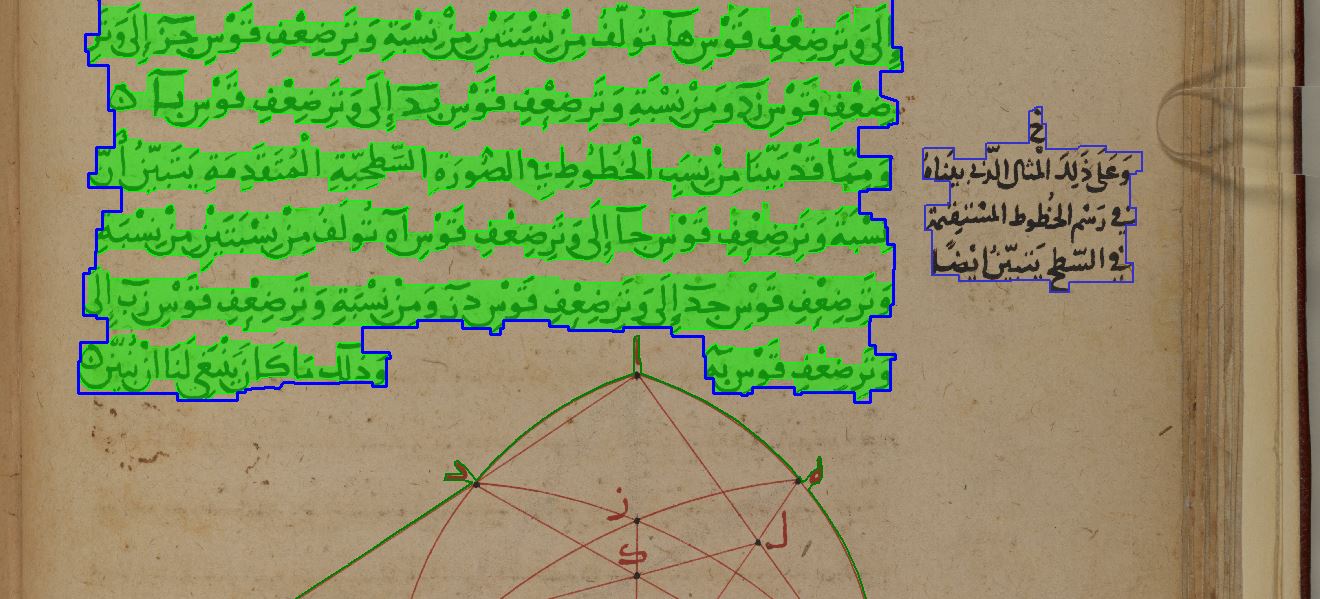 إلى وتر ضعف قوس هآ تؤلف من نسبتين من نسبة وتر ضعف قوس جز إلى وتر
ضعف قوس زد ومن نسبة وتر ضعف قوس بد إلى وتر ضعف قوس با ه
ومما قد بينا من نسب الخطوط في الصورة السطحية المتقدمة يتبين أن
نسبة وتر ضعف قوس جا إلى وتر ضعف قوس اه تؤلف من نسبتين من نسبة
وتر ضعف قوس جد إلى وتر ضعف قوس دز ومن نسبة وتر ضعف قوس زب إلى
وتر ضعف قوس به وذلك ما كان ينبغي لنا ان نبين ه
خ
وعلى ذلك المثال الذي بيناه
في رسم الخطوط المستقيمة
في السطح يتبين ايضًا
ا
ه
د
ز
ل
ك